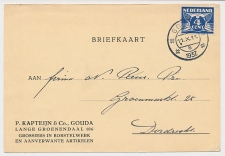 NEDERLAND
BRIEFKAART
AAN
Firma
Pr.
Groenmarkt
Dordrecht
P. KAPTEIJN & Co., GOUDA
LANGE GROENENDAAL 106
GROSSIERS IN BORSTELWERK
EN AANVERWANTE ARTIKELEN